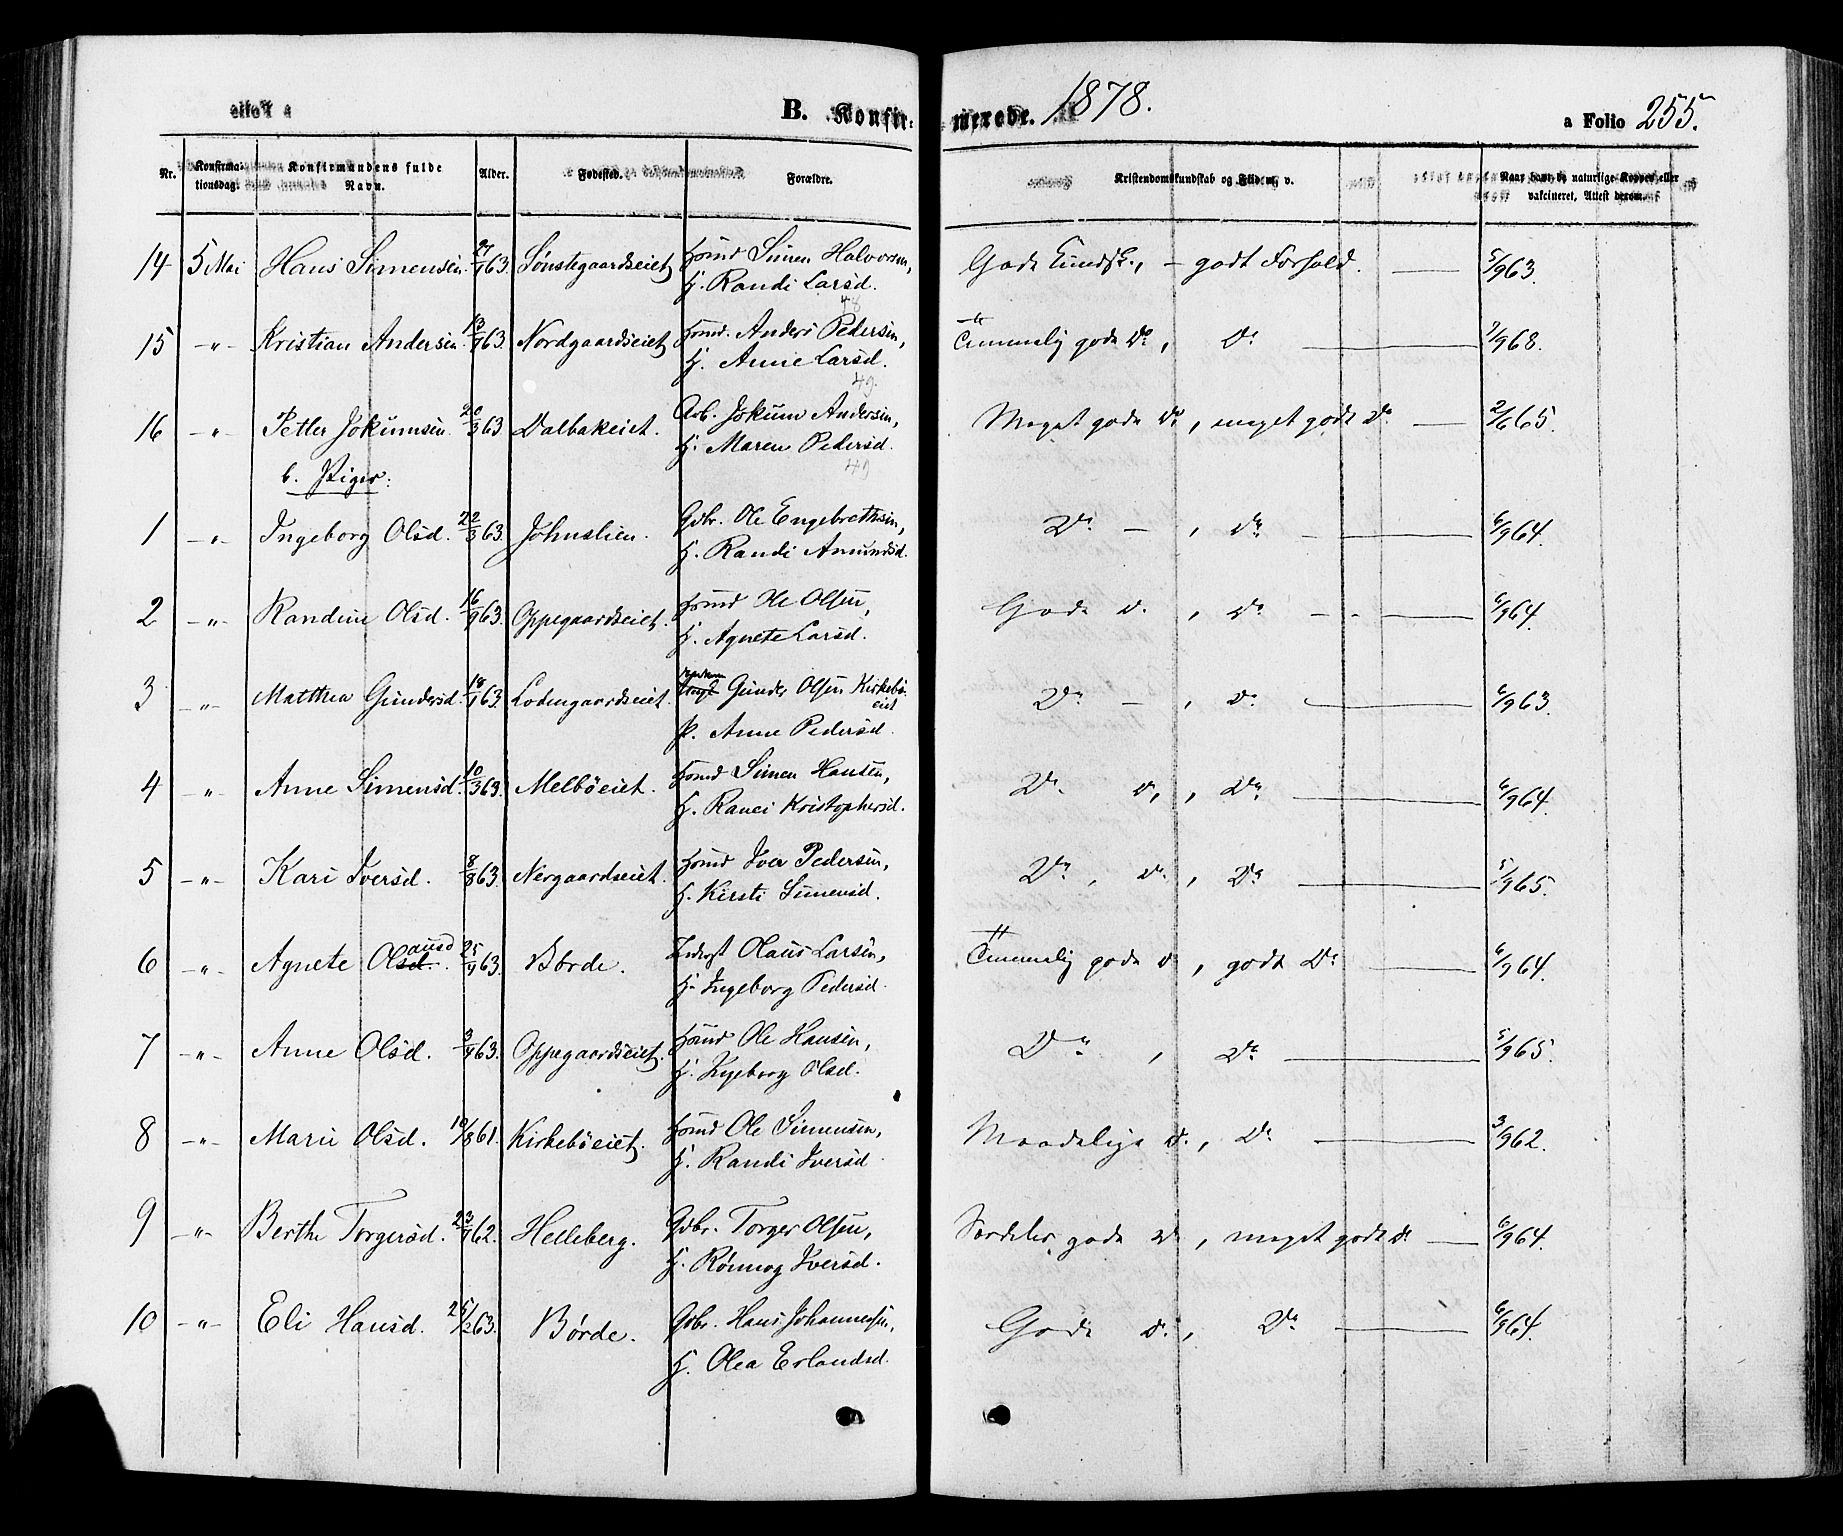 B. Konfirmerede. 1878.
a Folio 255.
Nr. Konfirmationsdag. Konfirmandens fulde Navn. Alder. Fødested. Forældre. Kristendomskundskab og Flid m. v. Naar havt de naturlige Kopper eller vakcineret, Attest derom.
14 5 Mai Hans Simensen. 63. Sønstegaardseiet Huusmd Simen Halvorsen, Gode Kundsk., - godt Forhold. 5/9 63.
H. Randi Larsd.
48
15 -"- Kristian Andersen 13/9 63. Nordgaardseiet Huusmd. Anders Pedersen, Temmelig gode Do, Do 7/9 68.
H. Anne Larsd.
49.
16 -"- Petter Jokumsen. 20/3 63 Dalbakeiet. Arb. Jokum Andersen, Meget gode Do, meget godt Do 2/6 65.
H. Maren Pedersd.
49
b. Piger:
1 -"- Ingeborg Olsd. 22/3 63. Johnslien. Gbr. Ole Engebrethsen, Do -, Do 6/9 64.
H. Randi Amundsd.
2 -"- Randine Olsd. 16/9 63. Oppegaardseiet. Huusmd Ole Olsen, Gode D., Do 6/9 64.
H. Agnete Larsd.
3 -"- Matthea Gundersd. 63. Lodengaardseiet. Gunder Olsen Kirkebøeiet Do -, Do 6/9 63.
P. Anne Pedersd.
4 -"- Anne Simensd. 10/3 63. Melbøeiet. Huusmd Simen Hansen, Do D., Do 6/9 64.
H. Ranei Kristophersd.
5 -"- Kari Iversd. 8/8 63. Nergaardseiet. Huusmd Iver Pedersen, Do, D., Do 5/9 65.
H. Kirsti Simensd.
6 -"- Agnete Olausd. 25/9 63. Børde. Inderst Olaus Larsen, Temmelig gode D, godt Do 6/9 64.
H. Ingeborg Pedersd.
7 -"- Anne Olsd. 3/9 63. Oppegaardseiet. Huusmd Ole Hansen, Do, Do 5/9 65.
H. Ingeborg Olsd.
8 -"- Marie Olsd. 10/8 61. Kirkebøeiet. Huusmd Ole Simensen, Maadelige D., Do 3/9 62.
H. Randi Iversd
9 -"- Berthe Torgersd. 23/9 62. Helleberg. Gbr. Torger Olsen, Særdeles gode Do, meget godt Do 6/9 64.
H. Rønnog Iversd.
10 -"- Eli Hansd. 25/2 63. Børde. Gbr. Hans Johannesen, Gode D., Do 6/9 64.
H. Olea Erlandsd.